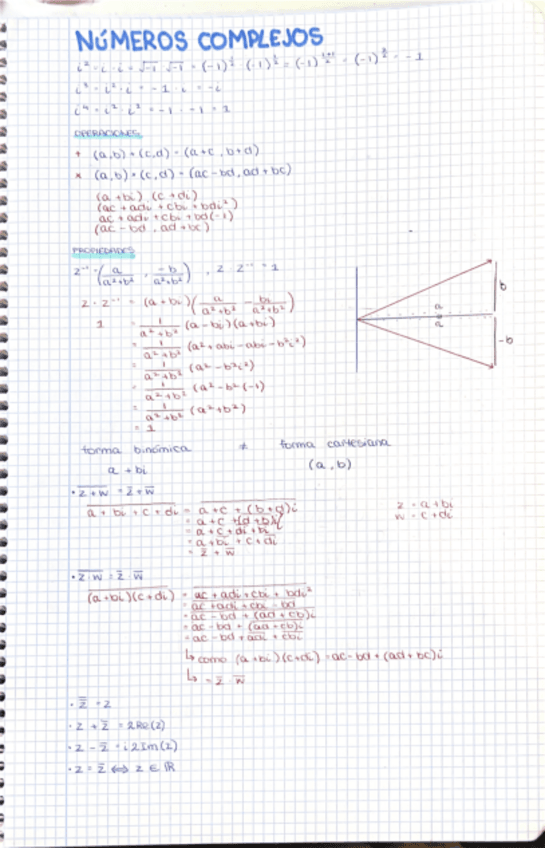 NÚMEROS COMPLEJOS
i² = i · i = √-1 · √-1 = (-1)^½ · (-1)^½ = (-1)^(½+½) = (-1)^(2/2) = -1
i³ = i² · i = -1 · i = -i
i⁴ = i² · i² = -1 · -1 = 1
OPERACIONES
+ (a,b) + (c,d) = (a+c, b+d)
× (a,b) · (c,d) = (ac - bd, ad + bc)
(a + bi) (c + di)
(ac + adi + cbi + bdi²)
ac + adi + cbi + bd(-1)
(ac - bd, ad + bc)
PROPIEDADES
z⁻¹ = (a/(a²+b²), -b/(a²+b²)), z · z⁻¹ = 1
z · z⁻¹ = (a + bi) (a/(a²+b²) - bi/(a²+b²))
1 = 1/(a²+b²) (a - bi)(a + bi)
= 1/(a²+b²) (a² + abi - abi - b²i²)
= 1/(a²+b²) (a² - b²i²)
= 1/(a²+b²) (a² - b²(-1)
= 1/(a²+b²) (a² + b²)
= 1
b
a
a
-b
forma binómica ≠ forma cartesiana
a + bi (a, b)
· z̅+̅w̅ = z̅ + w̅
a + bi + c + di = a + c + (b + d)i
= a + c + (d + b)i
= a + c + di + bi
= a + bi + c + di
= z̅ + w̅
z = a + bi
w = c + di
· z̅·̅w̅ = z̅ · w̅
(a + bi)(c + di) = ac + adi + cbi + bdi²
= ac + adi + cbi - bd
= ac - bd + (ad + cb)i
= ac - bd + (ad + cb)i
= ac - bd + adi + cbi
↳ como (a + bi)(c + di) = ac - bd + (ad + bc)i
↳ = z̅ · w̅
· z̿ = z
· z + z̅ = 2Re(z)
· z - z̅ = i2Im(z)
· z = z̅ ⟺ z ∈ ℝ